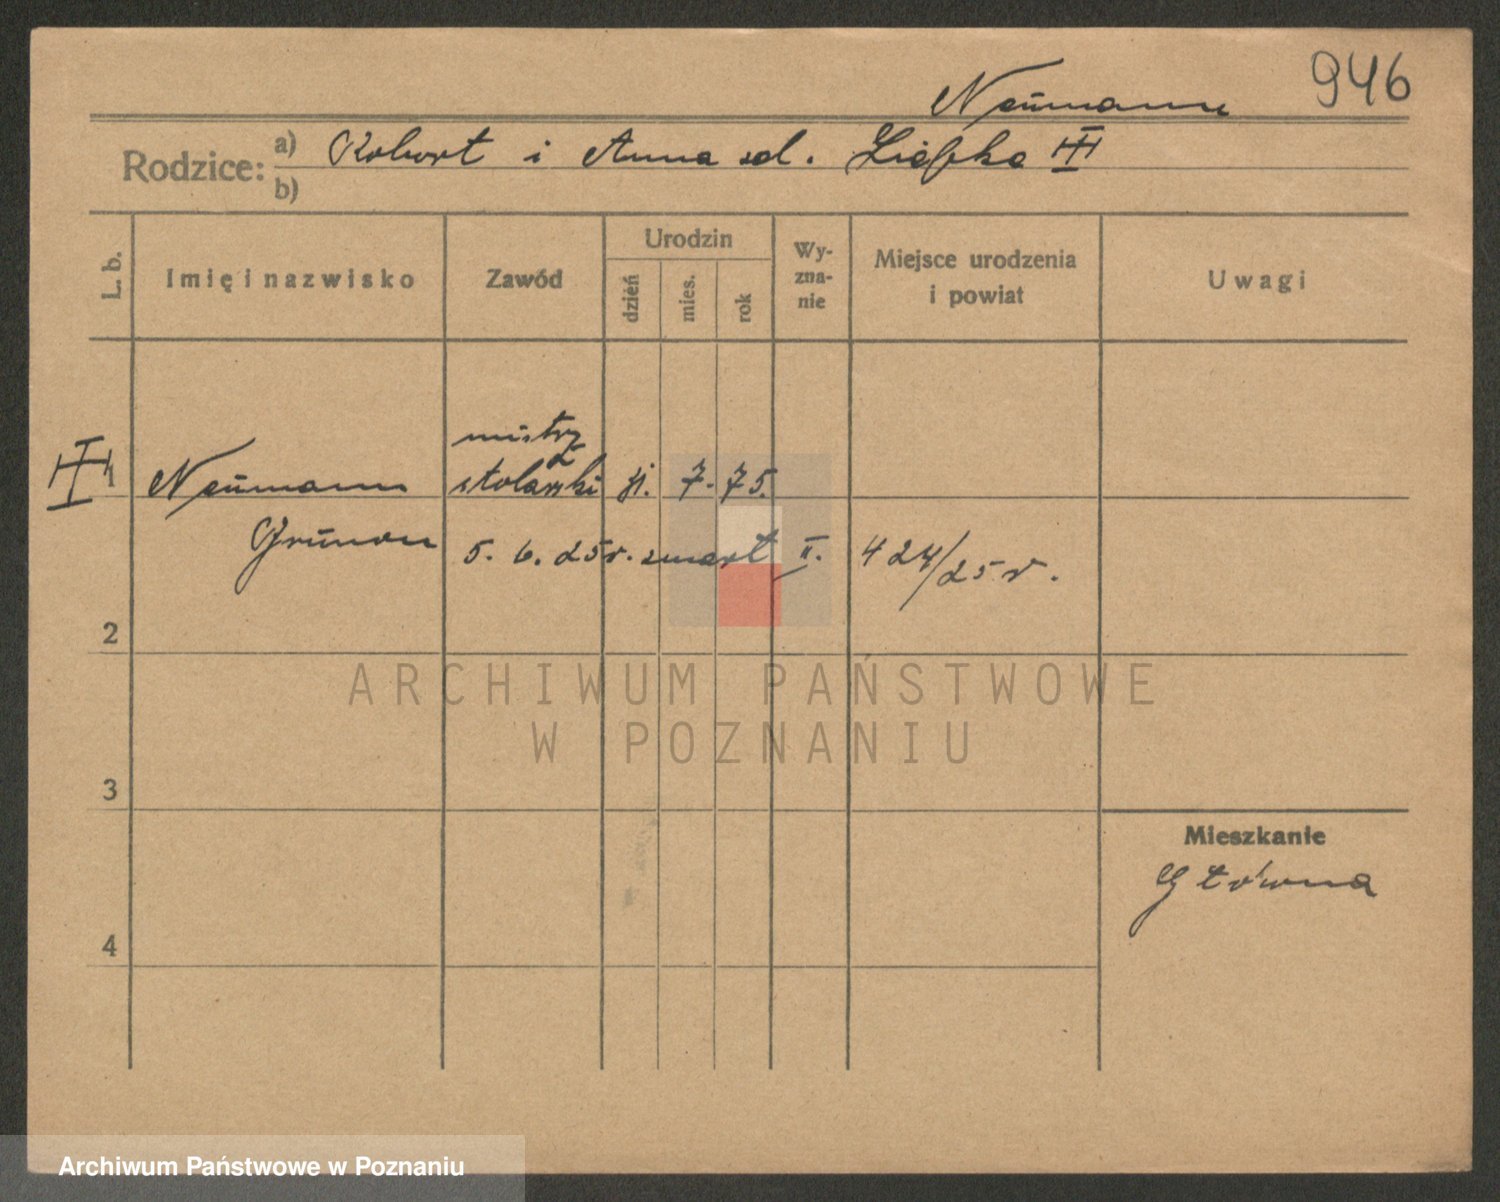 946
Neumann
Rodzice: a) Robert i Anna zd. Liepke
b)
L. b.
Imię i nazwisko
Zawód
Urodzin
dzień
mies.
rok
Wy-
zna-
nie
Miejsce urodzenia
i powiat
Uwagi
mistrz
1 Neumann stolarski 7. 75.
5. 6. 25 r. zmart II. 424/25 r.
2
ARCHIWUM PAŃSTWOWE
W POZNANIU
3
Mieszkanie
Główna
4
Archiwum Państwowe w Poznaniu